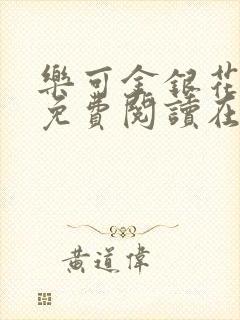 樂可金銀花
免費閱讀在
黃道偉